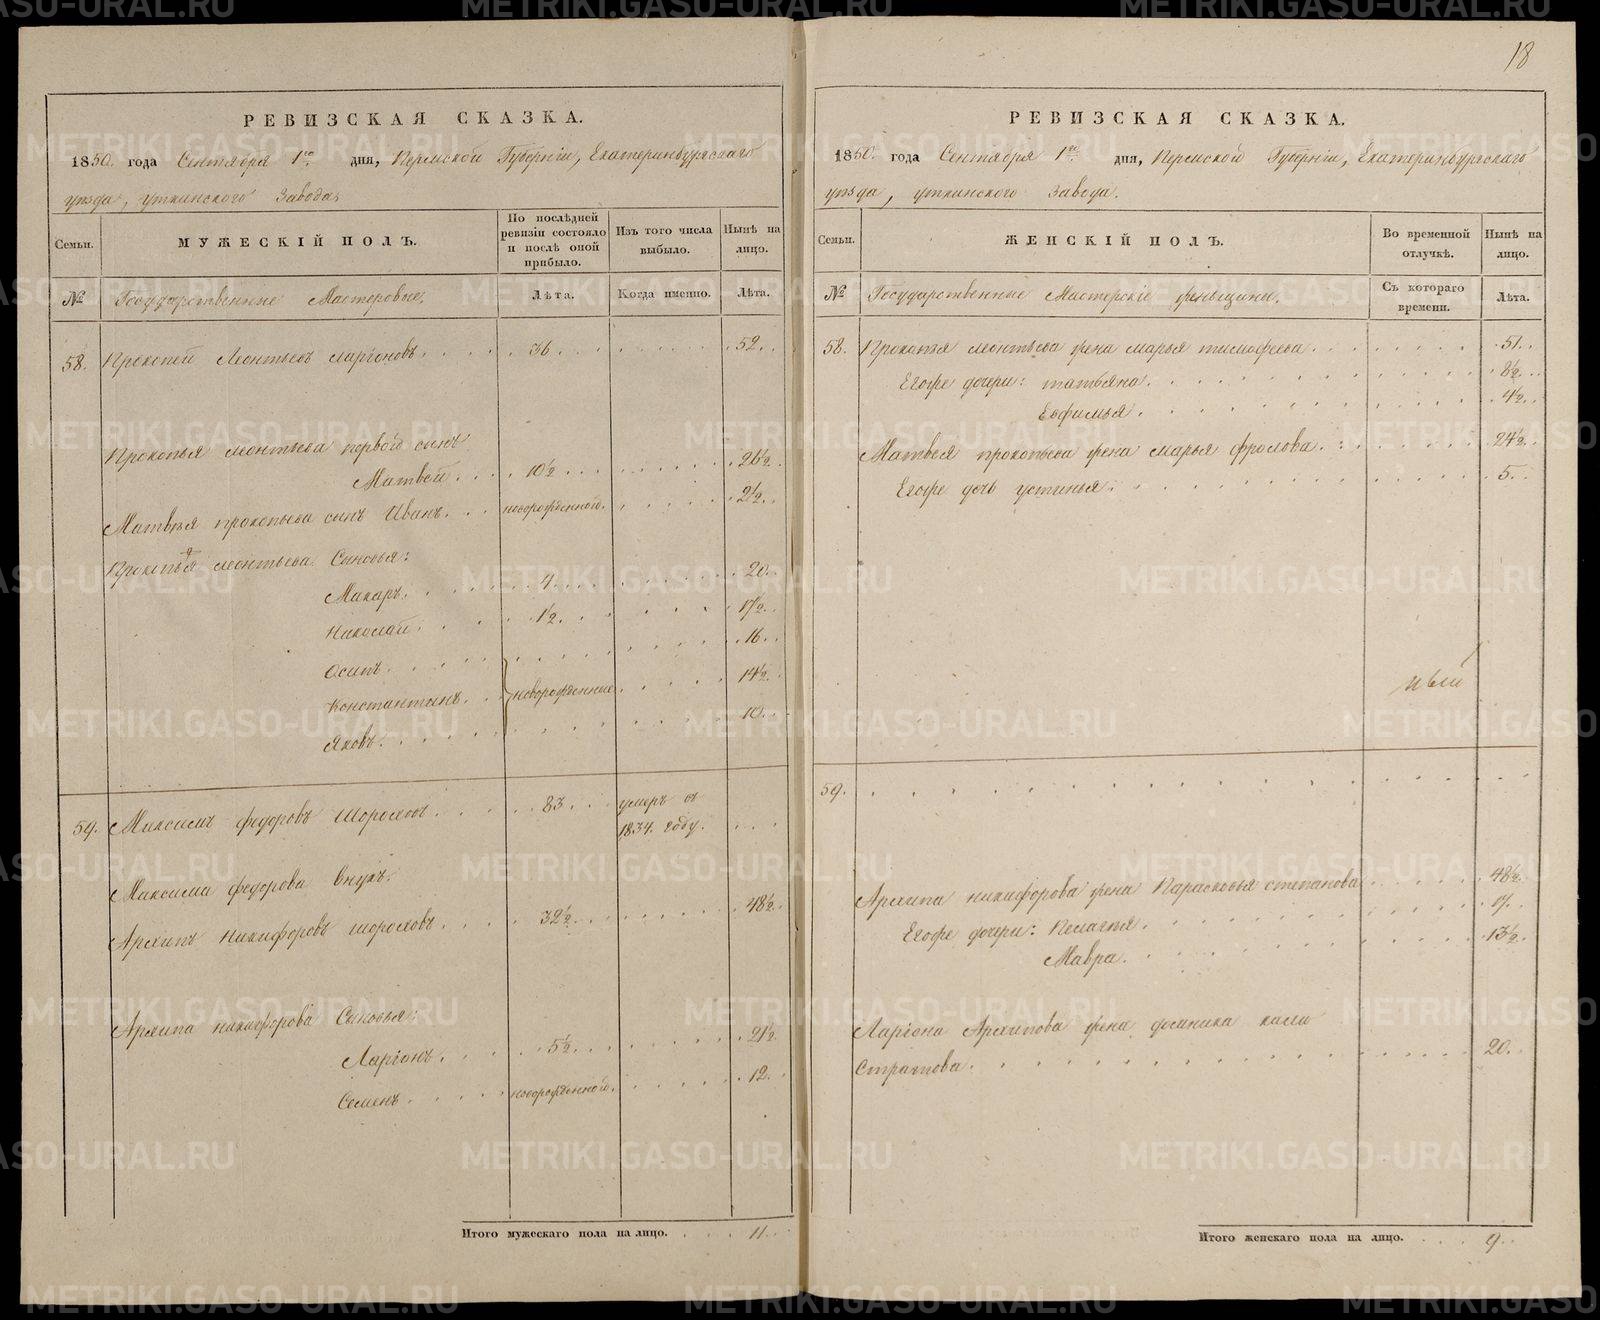 18
РЕВИЗСКАЯ СКАЗКА.
1850. года Сентября 1го. дня, Пермской Губернiи, Екатеринбургскаго
уѣзда, уткинского Завода,
Семьи.
МУЖЕСКIЙ ПОЛЪ.
По послѣдней ревизiи состояло и послѣ оной прибыло.
Изъ того числа выбыло.
Нынѣ на лицо.
№ Государственные Мастеровые. Лѣта. Когда именно. Лѣта.
58. Прокопей Леонтьевъ ларiоновъ. 36. 52.
Прокопья леонтьева первой сынъ
Матвей. 10½ 26½.
Матвѣя прокопьева сынъ Иванъ. новорожденной. 2½.
Прокопья леонтьева Сыновья:
Макаръ. 4. 20.
Николай. 1½. 17½.
Осипъ. 16.
Константинъ. новорожденные 14½.
Яковъ. 10.
59. Максимъ федоровъ Шороховъ. 83. умеръ въ
1834. году.
Максима федорова внукъ.
Архипъ Никифоровъ шороховъ. 32½. 48½.
Архипа никифорова Сыновья:
Ларiонъ. 5½. 21½
Семенъ. новорожденной. 12.
Итого мужескаго пола на лицо. 11.
РЕВИЗСКАЯ СКАЗКА.
1850. года Сентября 1го. дня, Пермской Губернiи, Екатеринбургскаго
уѣзда, уткинского Завода.
Семьи.
ЖЕНСКIЙ ПОЛЪ.
Во временной отлучкѣ.
Нынѣ на лицо.
№ Государственные Мастерскiе женьщины. Съ котораго времени. Лѣта.
58. Прокопья леонтьева жена марья тимофеева. 51.
Егоже дочери: татьяна. 8½.
Евфимья. 4½.
Матвея прокопьева жена марья фролова. 24½.
Егоже дочь устинья. 5.
59.
Архипа никифорова жена Парасковья степанова 48½.
Егоже дочери: Пелагѣя. 17.
Мавра. 13½.
Ларiона Архипова жена
Стратова. 20.
Итого женскаго пола на лицо. 9.
METRIKI.GASO-URAL.RU